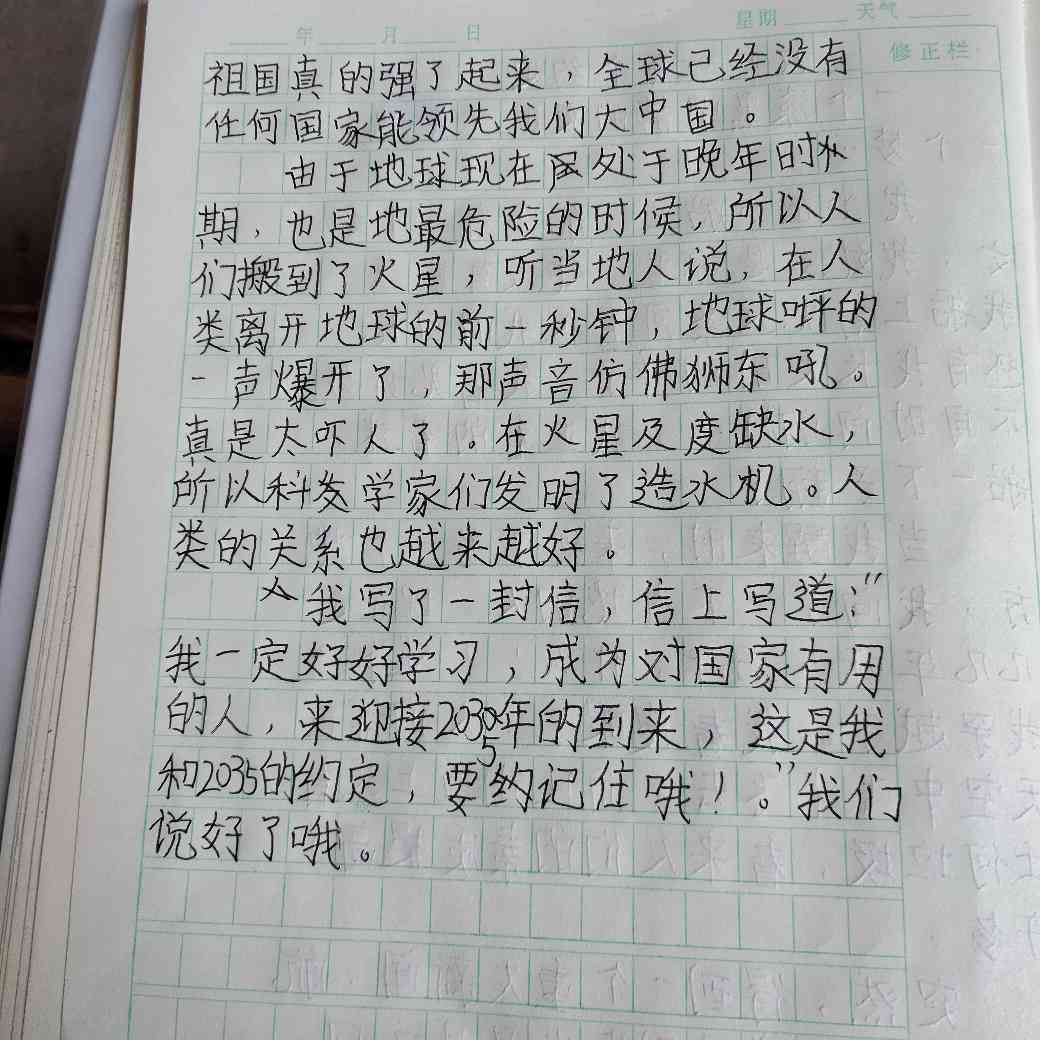 年 月 日 星期 天气
修正栏
祖国真的强了起来，全球已经没有
任何国家能领先我们大中国。
由于地球现在处于晚年时
期，也是地最危险的时候，所以人
们搬到了火星，听当地人说，在人
类离开地球的前一秒钟，地球呯的
一声爆开了，那声音仿佛狮东吼。
真是太吓人了。在火星及度缺水，
所以科学家们发明了造水机。人
类的关系也越来越好。
我写了一封信，信上写道："
我一定好好学习，成为对国家有用
的人，来迎接2035年的到来，这是我
和2035的约定，要约记住哦！。"我们
说好了哦。